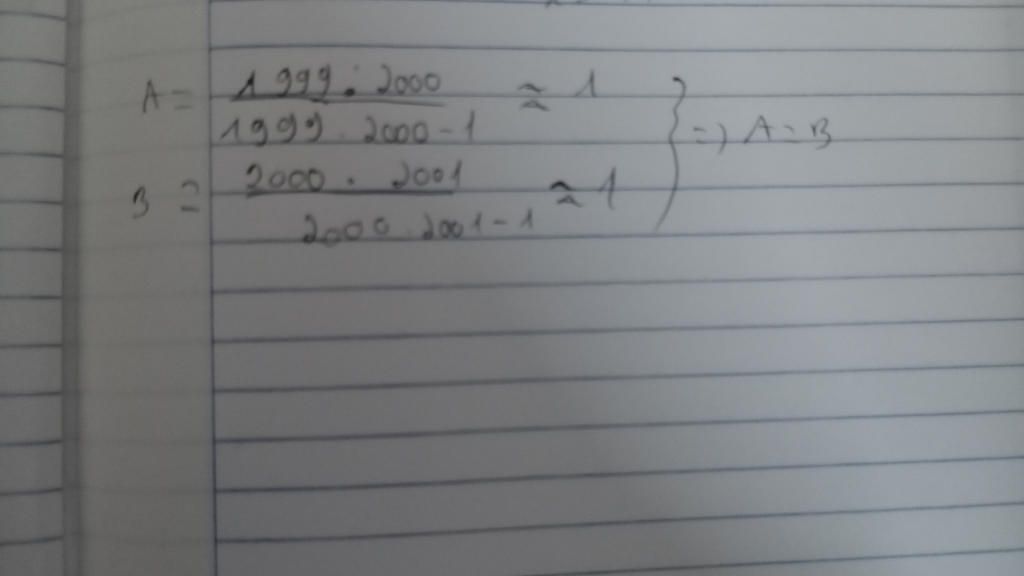 A = 1999 . 2000 / 1999 . 2000 - 1 ≈ 1
B = 2000 . 2001 / 2000 . 2001 - 1 ≈ 1
} => A = B